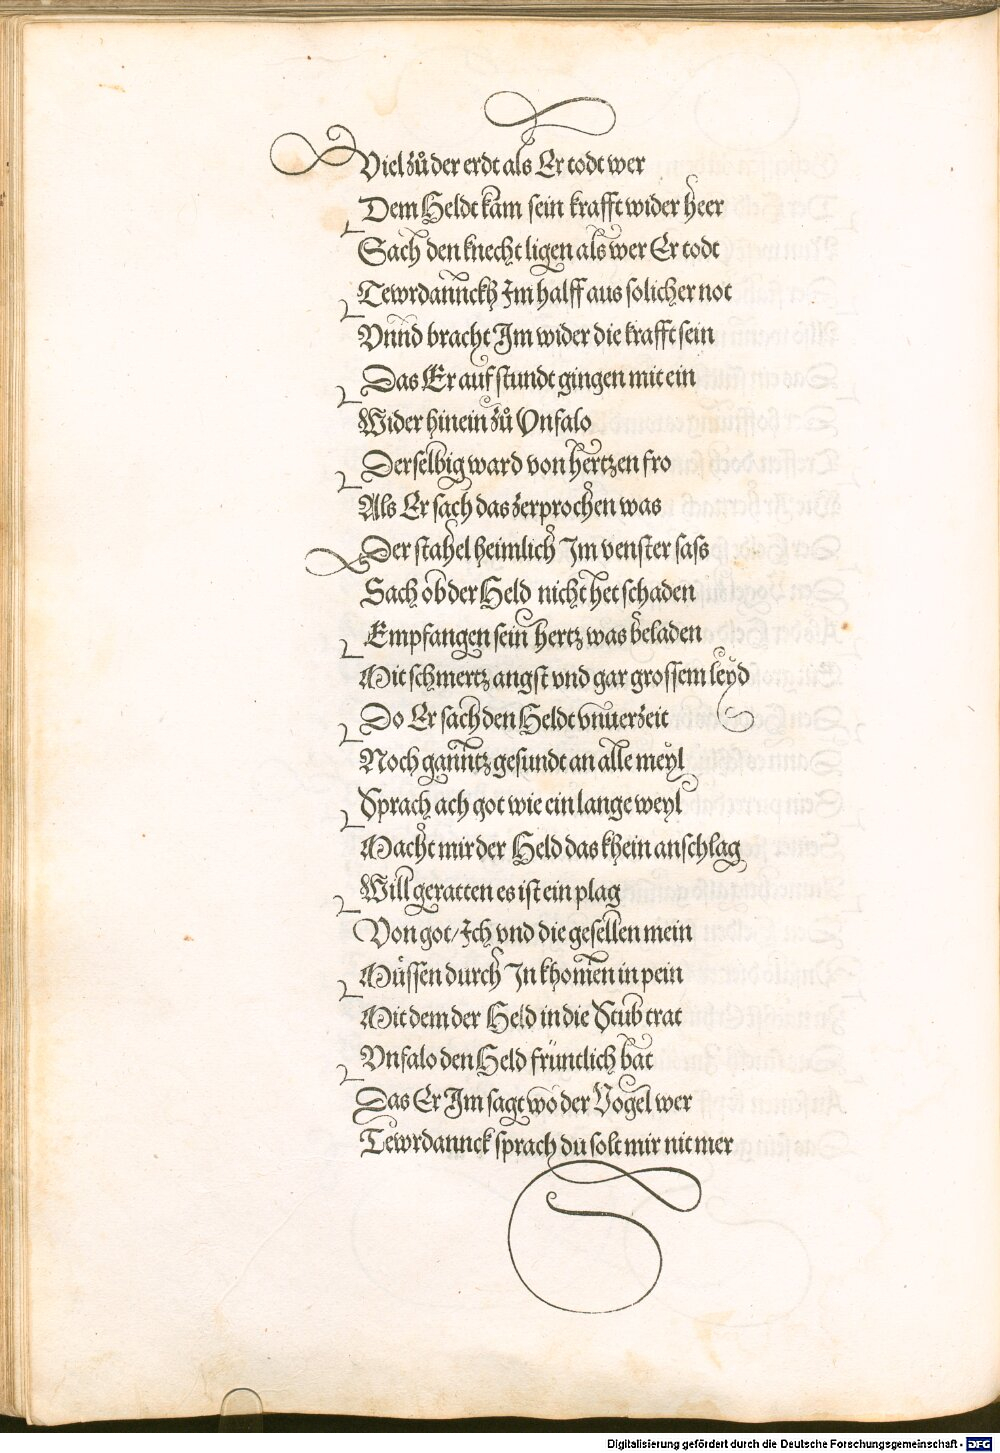 Viel zů der erdt als Er todt wer
Dem Heldt kam sein krafft wider heer
Sach den knecht ligen als wer Er todt
Tewrdannckh Im halff aus solicher not
Vnnd bracht Im wider die krafft sein
Das Er auf stundt gingen mit ein
Wider hinein zů Vnfalo
Derselbig ward von hertzen fro
Als Er sach das zerprochen was
Der stahel heimlich Im venster sass
Sach ob der Held nicht het schaden
Empfangen sein hertz was beladen
Mit schmertz angst vnd gar grossem leyd
Do Er sach den Heldt vnuerzeit
Noch ganntz gesundt an alle meyl
Sprach ach got wie ein lange weyl
Macht mir der Held das khein anschlag
Will geratten es ist ein plag
Von got / Ich vnd die gesellen mein
Müssen durch In khomen in pein
Mit dem der Held in die Stub trat
Vnfalo den Held früntlich bat
Das Er Im sagt wo der Vogel wer
Tewrdannck sprach du solt mir nit mer
Digitalisierung gefördert durch die Deutsche Forschungsgemeinschaft - DFG